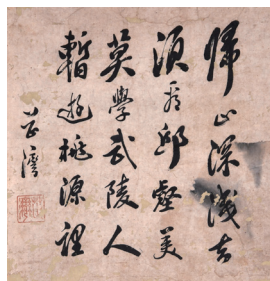 歸山深淺去
須盡邱壑美
莫學武陵人
暫遊桃源裡
芷灣